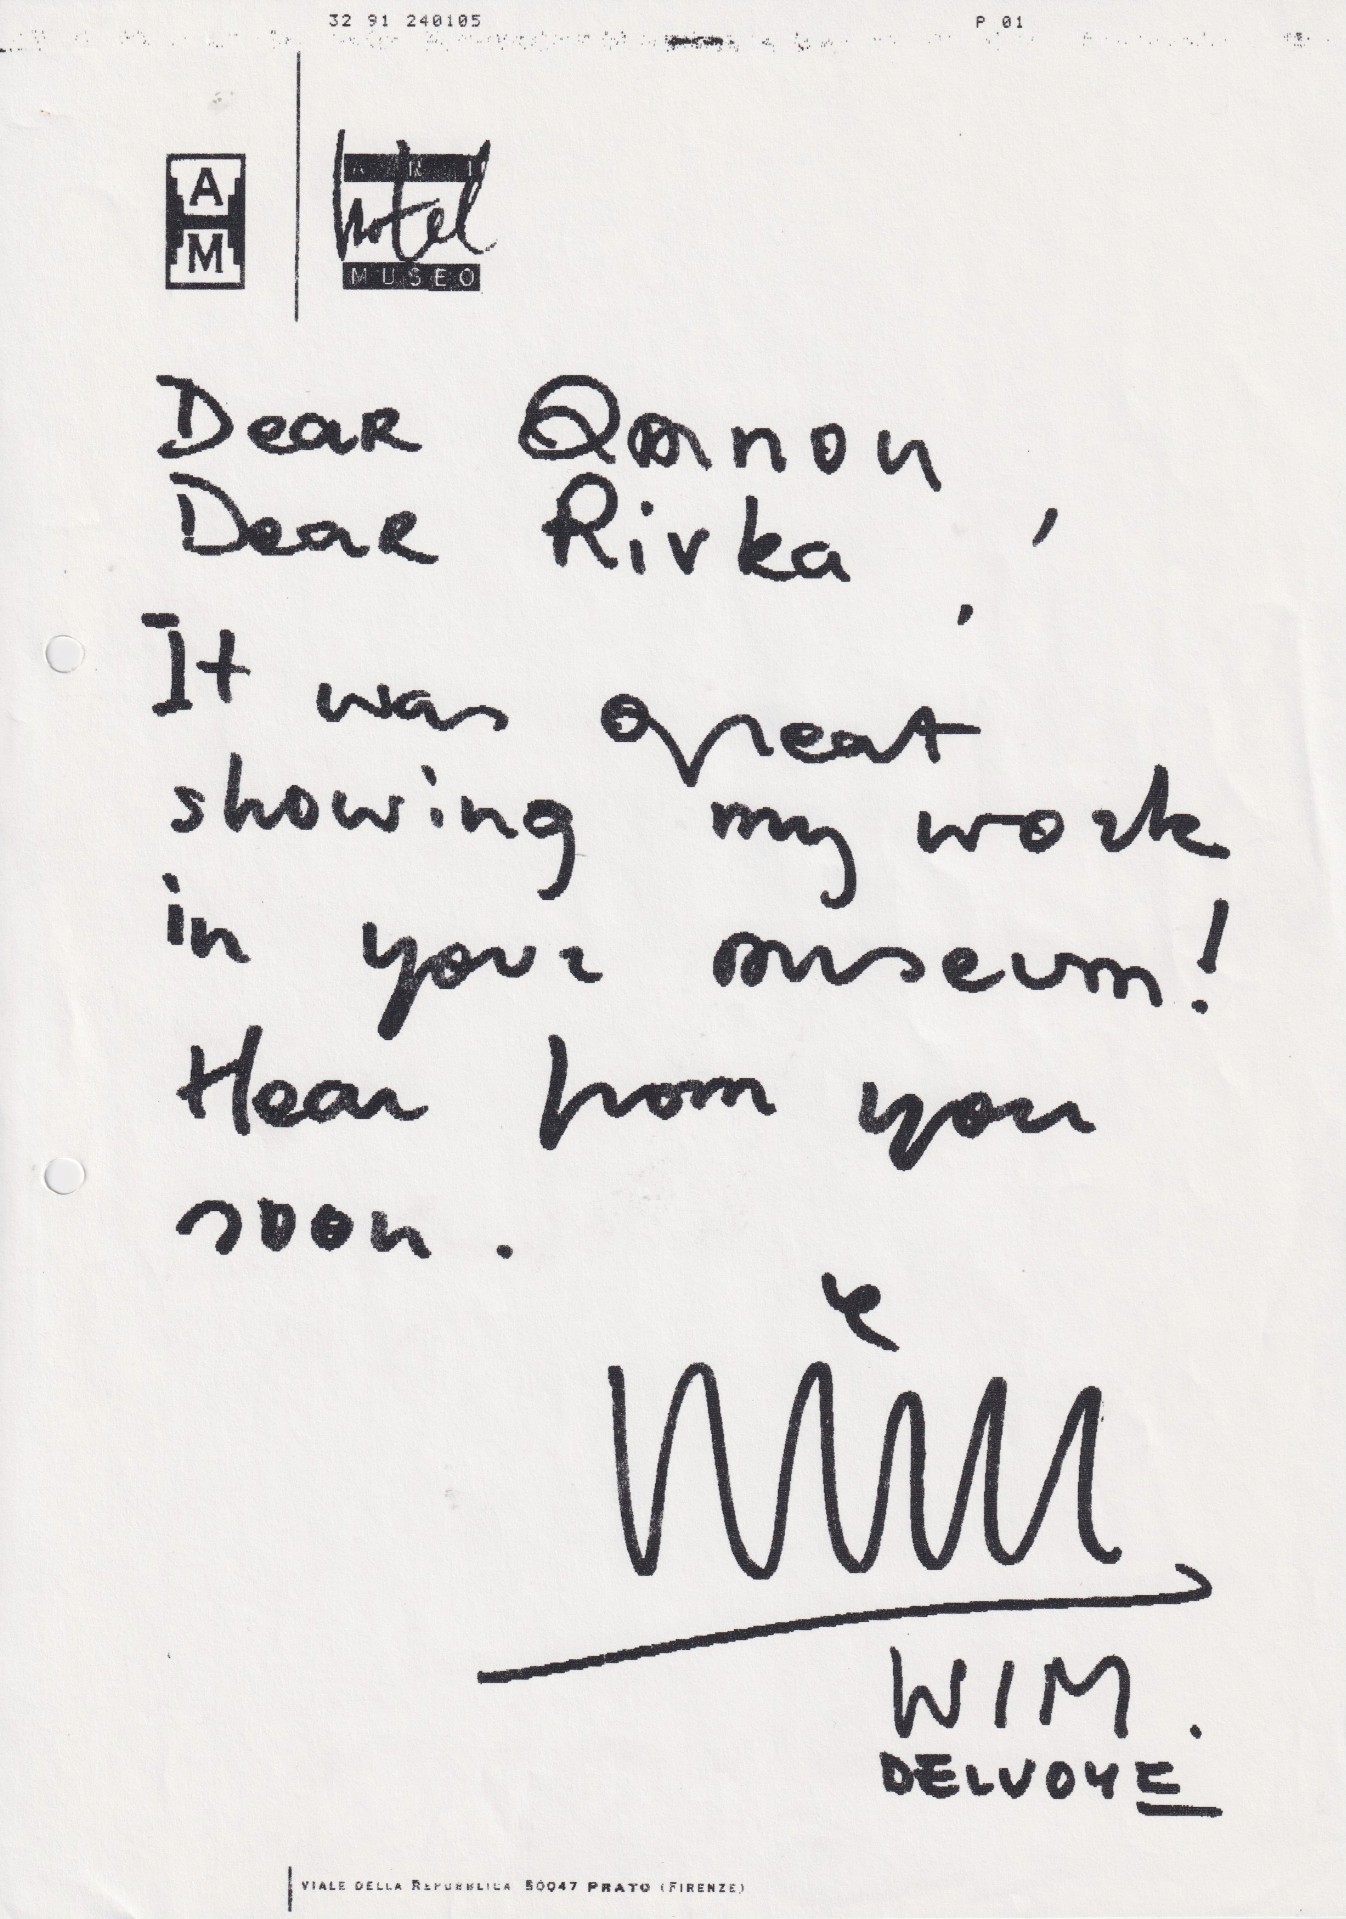 32 91 240105 P 01
A
M
ART
hotel
MUSEO
Dear
Dear Rivka,
It was great
showing my work
in your museum!
Hear from you
soon.
Wim
WIM.
DELVOYE
VIALE DELLA REPUBBLICA 50047 PRATO (FIRENZE)